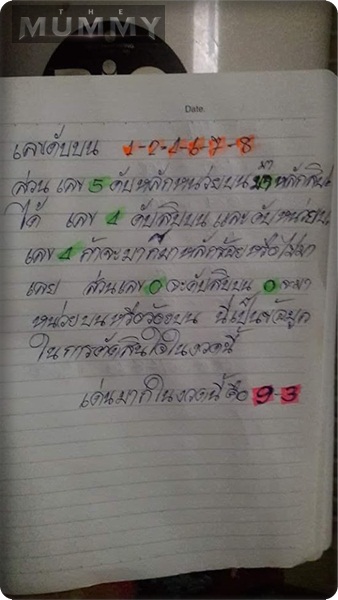 THE
MUMMY
Date.
เลขดับบน 1-2-4-6-7-8
ส่วน เลข 5 ดับหลักหน่วยบน มา หลักสิบ
ได้ เลข 4 ดับสิบบน และดับหน่วยบน
เลข 4 ถ้าจะมาก็มาหลักร้อยหรือไม่มา
เลย ส่วนเลข 0 จะดับสิบบน 0 จะมา
หน่วยบนหรือร้อยบน นี่เป็นข้อมูล
ในการตัดสินใจในงวดนี้
เด่นมากในงวดนี้ คือ 9-3